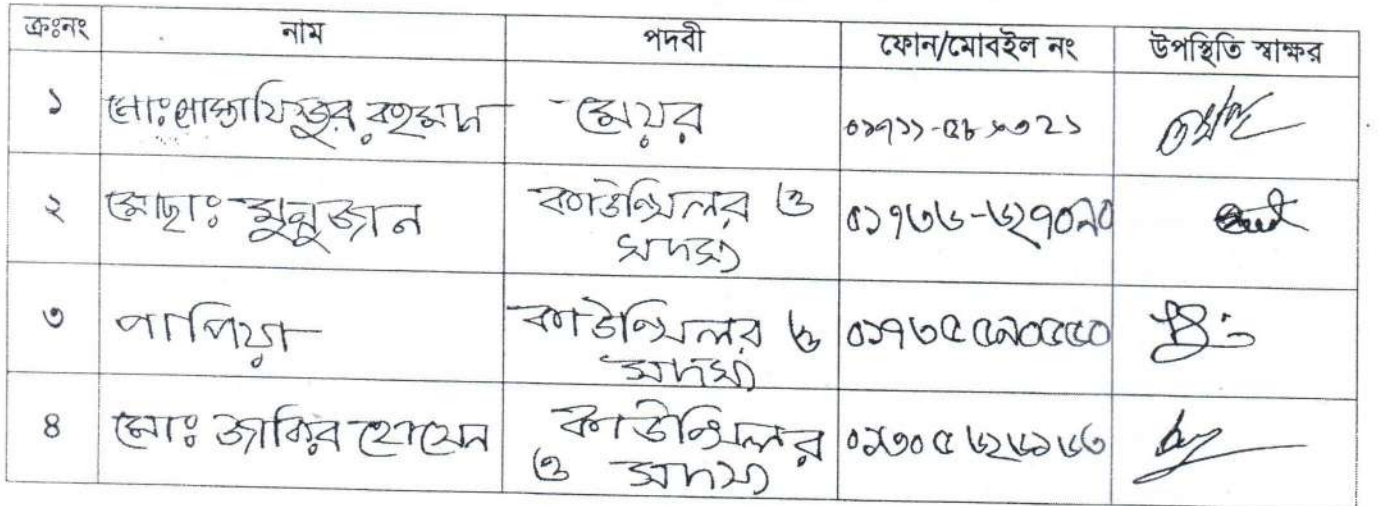 ক্রঃনং নাম পদবী ফোন/মোবইল নং উপস্থিতি স্বাক্ষর
১ মোঃ মোস্তাফিজুর রহমান মেয়র
২ মোছাঃ মুন্নুজান কাউন্সিলর ও সদস্য ০১৭৩৬-৬২৭০৯০
৩ পাপিয়া কাউন্সিলর ও সদস্য ০১৭৬৫৫৯০৫৫০
৪ মোঃ জাকির হোসেন কাউন্সিলর ও সদস্য